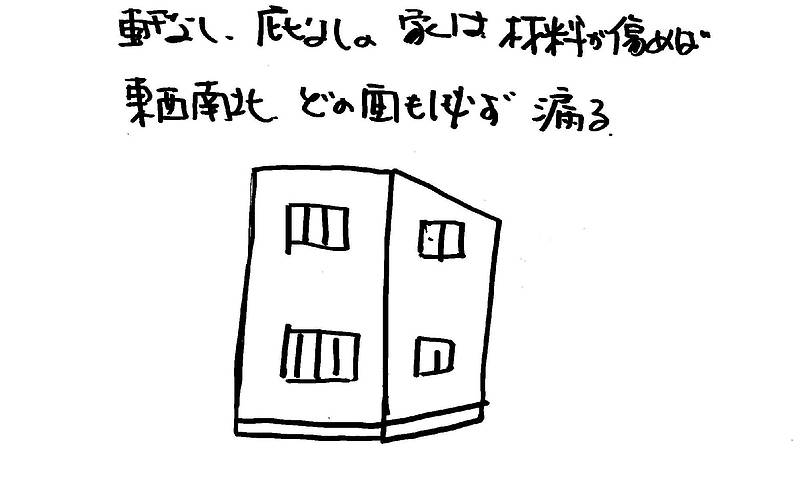 軒なし、庇なしの 家は 材料が傷めば
東西南北 どの面も必ず 漏る